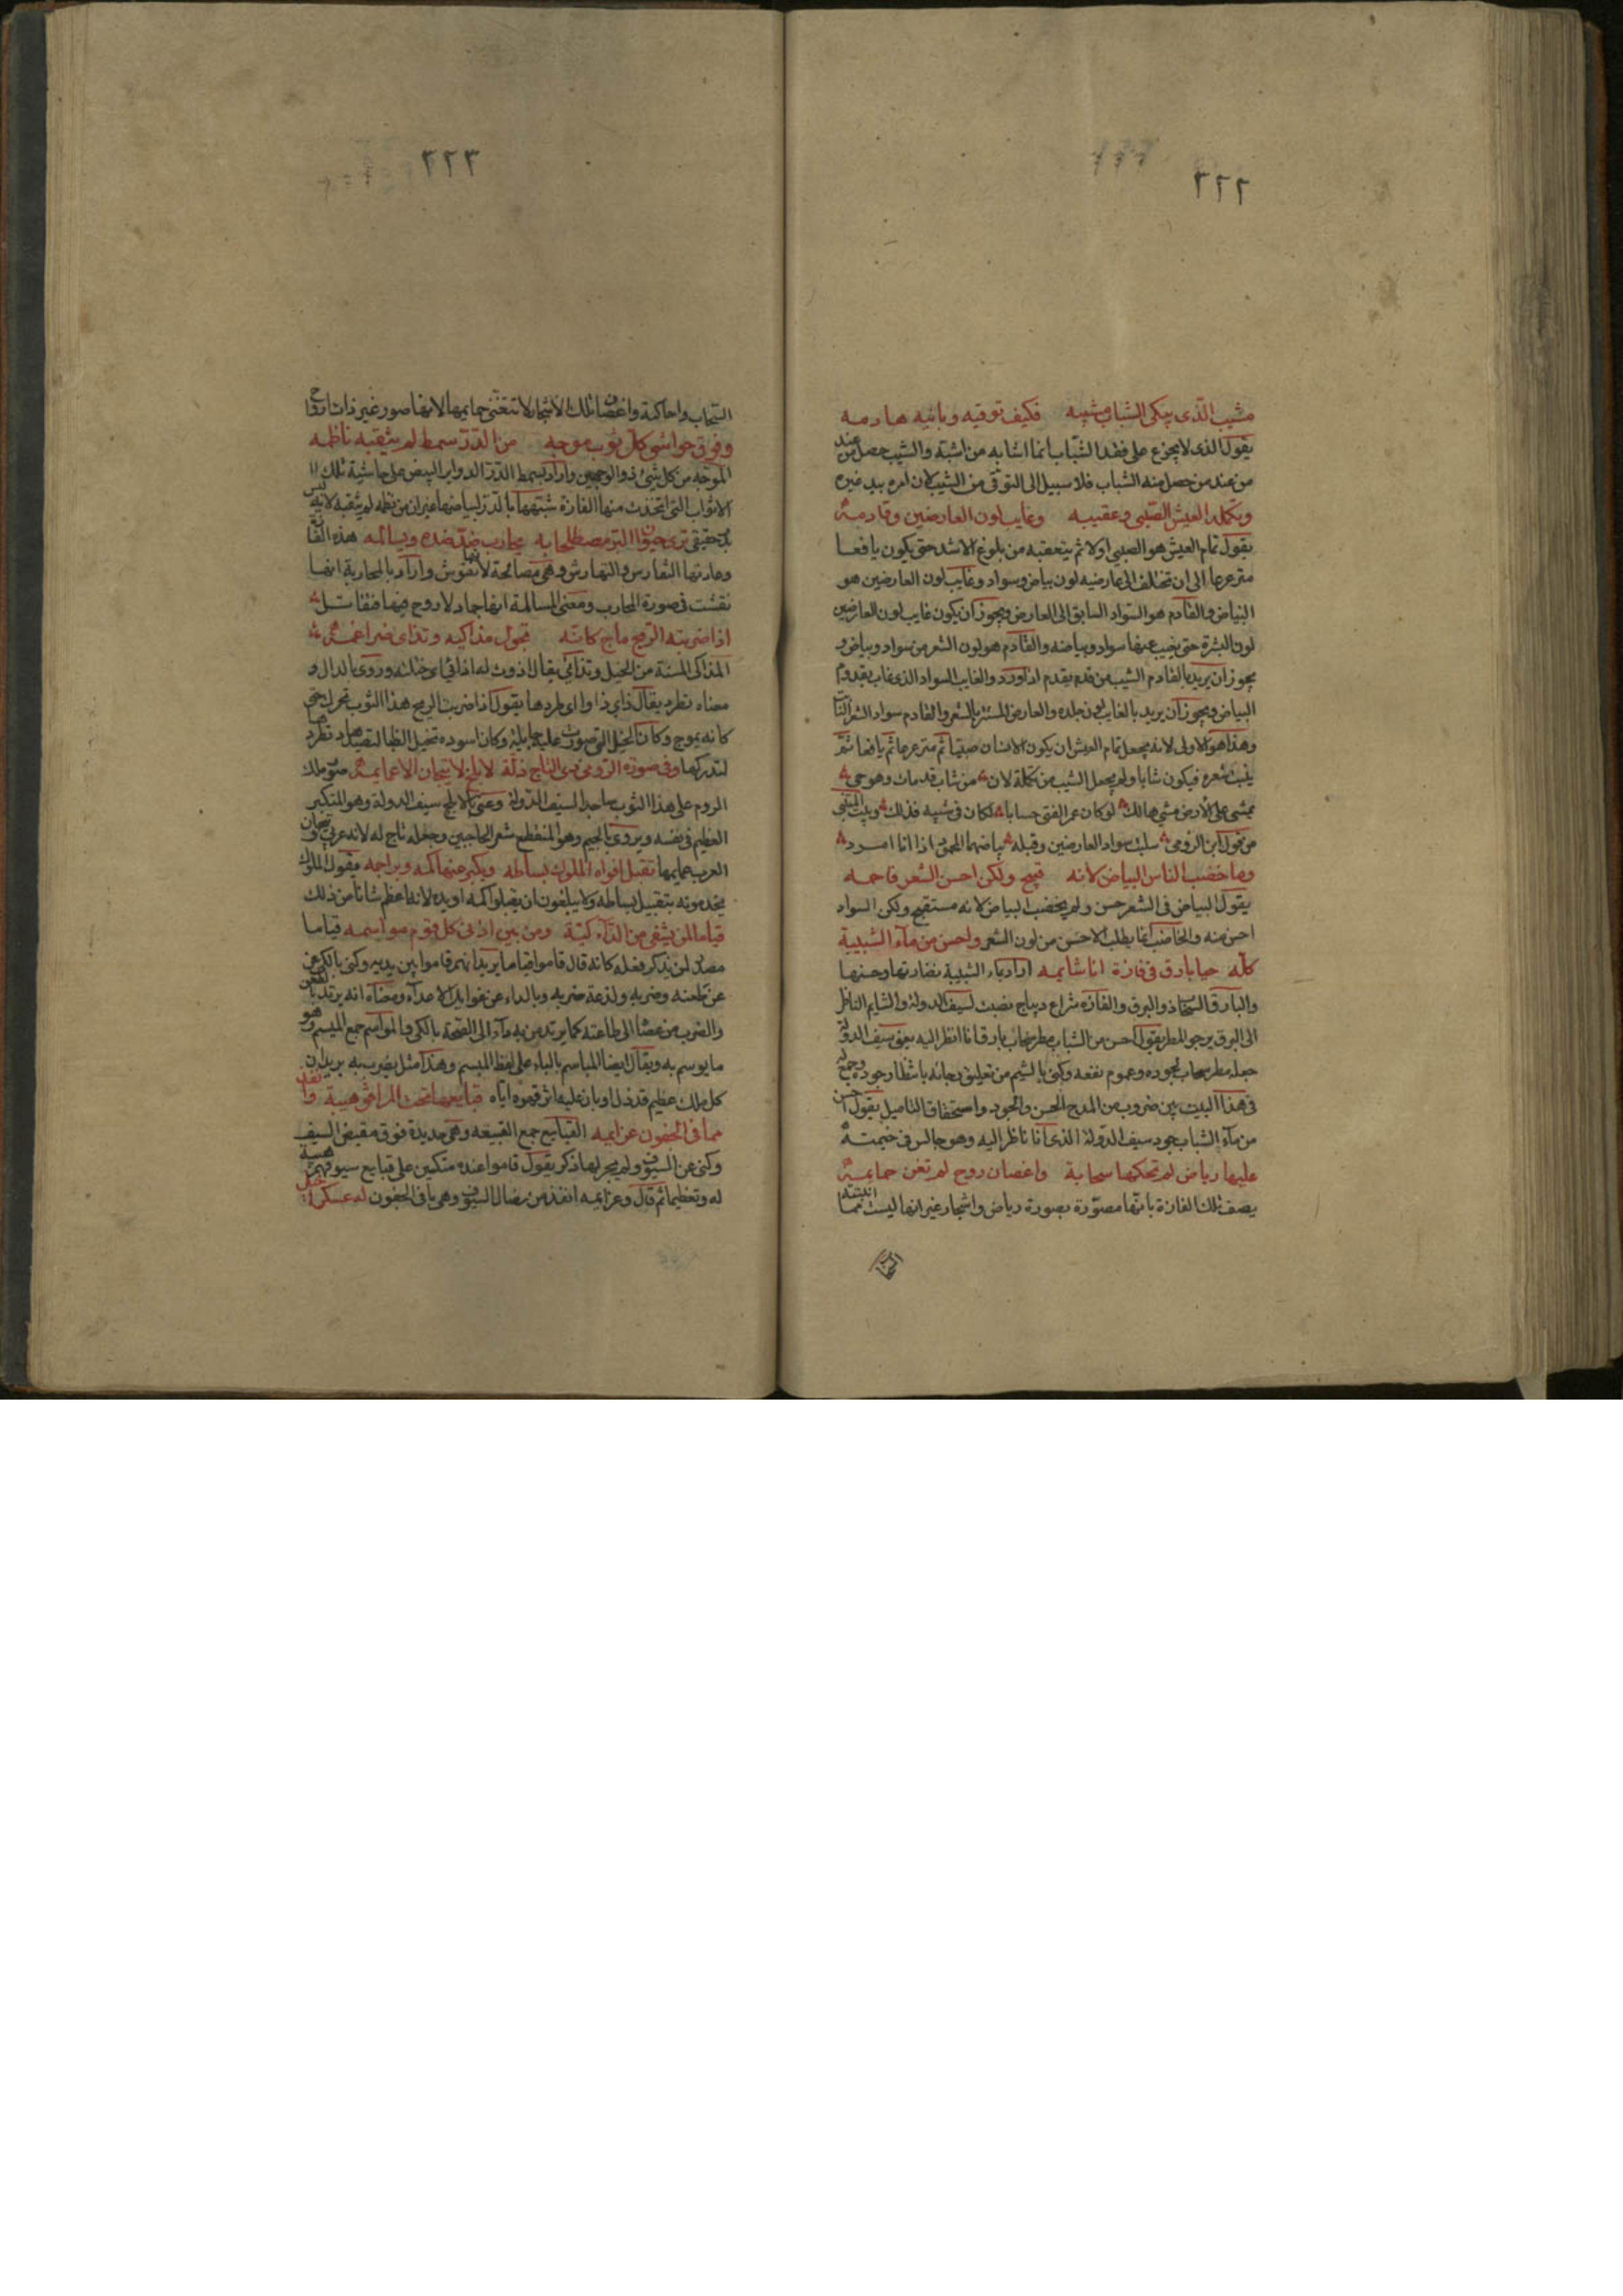 ٢٢٢
مشيب الذى يبكى الشباب مشيبه فكيف توقيه وبانيه هادمه
يقول الذى لا يجزع على فقد الشباب انما اشابه من اشبه والشيب حصل من عند
من عند من حصل منه الشباب فلا سبيل الى التوقى من الشيب لان امره بيد غيره
وتكملة العيش الصبى وعقيبه وغايب لون العارضين وقادمه
يقول تمام العيش هو الصبى اولا ثم يتعقبه من بلوغ الاشد حتى يكون يافعا
مترعرعا الى ان تختلف الى عارضيه لون بياض وسواد وغايب لون العارضين هو
البياض والقادم هو السواد السابق الى العارض ويجوز ان يكون غايب لون العارضين
لون البشرة حتى يغيب عنها سواده وبياضه والقادم هو لون الشعر من سواد وبياض و
يجوز ان يريد بالقادم الشيب من قدم يقدم اذا ورد والغايب السواد الذى غاب بقدوم
البياض ويجوز ان يريد بالغايب لون جلده والعارض المستتر بالشعر والقادم سواد الشعر النابت
وهذا هو الاولى لانه يجعل تمام العيش ان يكون الانسان صبيا ثم مترعرعا ثم يافعا ثم
ينبت شعره فيكون شابا ولم يجعل الشيب من تكملة لان من شاب قد مات وهو حى
يمشى على الارض مشى هالك لو كان عمر الفتى حسابا لكان فى شيبه فذلك وبيت المتنبى
من قول ابن الرومى سلبت سواد العارضين وقبله بياضهما المحمود اذ انا امرد
وما خضب الناس البياض لانه قبيح ولكن احسن الشعر فاحمه
يقول البياض فى الشعر حسن ولم يخضب البياض لانه مستقبح ولكن السواد
احسن منه والخاضب انما يطلب الاحسن من لون الشعر واحسن من مآء الشبيبة
كله حيا بارق فى فازة انا شايمه اراد بماء الشبيبة نضارتها وحسنها
والبارق السحاب ذو البرق والفازة شراع ديباج نصبت لسيف الدولة والشايم الناظر
الى البرق يرجو المطر يقول احسن من الشباب مطر سحاب بارق انا انظر اليه يعنى سيف الدولة
جعله مطر سحاب لجوده وعموم نفعه وكنى بالشيم من تعليق رجائه بانتظار جوده وجمع له
فى هذا البيت بين ضروب من المدح الحسن والجود واستحقاق التاميل يقول احسن
من مآء الشباب جود سيف الدولة الذى انا ناظر اليه وهو جالس فى خيمته
عليها رياض لم تحكها سحابة واغصان دوح لم تغن حمايمه
يصف تلك الفازة بانها مصورة بصورة رياض واشجار غير انها ليست مما انبتته
٢٢٣
السحاب واحاكته واغصان تلك الاشجار لا تتغنى حمايمها لانها صور غير ذات ارواح
وفوق حواشى كل ثوب موجه من الدر سمط لم يثقبه ناظمه
الموجه من كل شئ ذو الوجهين واراد بسمط الدر الدواير البيض على حاشية تلك
الاثواب التى اتخذت منها الفازة شبهها بالدر لبياضها غير ان من نظمه لم يثقبه لانه ليس
بدر حقيقى ترى حيوان البر مصطلحا به يحارب ضد ضده ويسالمه هذه
وعادتها التفارس والتهارش وهى مصالحة لانها نقوش واراد بالمحاربة انها
نقشت فى صورة المحارب ومعنى المسالمة انها جماد لا روح فيها فتقاتل
اذا ضربته الريح ماج كانه تجول مذاكيه وتدأى ضراغمه
المذاكى المسنة من الخيل وتدأى يقال دأوت له اذا ختلته وروى بالدال و
معناه تطرد يقال ذاى ذأوا اى طردها يقول اذا ضربت الريح هذا الثوب تحرك حتى
كانه يموج وكان الخيل التى صورت عليه جايلة وكان اسوده تختل الظبا لتصيدها وتطرد
لتدركها وفى صورة الرومى ذى التاج ذلة لابلج لا تيجان الا عمايمه صور ملك
الروم على هذا الثوب ساجدا لسيف الدولة وعنى بالابلج سيف الدولة وهو المتكبر
العظيم فى نفسه ويروى بالجيم وهو المنقطع شعر الحاجبين وجعله لا تاج له لانه عربى وتيجان
العرب عمايمها تقبل افواه الملوك بساطه ويكبر عنها كمه وبراجمه يقول الملوك
يخدمونه بتقبيل بساطه ولا يبلغون ان يقبلوا كمه او يده لانه اعظم شانا من ذلك
قياما لمن يشفى من الدآء كيه ومن بين اذنى كل قرم مواسمه قياما
مصدر لمن يذكر فعله كانه قال قاموا قياما يريد انهم قاموا بين يديه وكنى بالكى عن
عن طعنه وضربه ولذعة حربه وبالداء عن غوايل الاعدآء ومعناه انه يرتد بالطعن
والضرب من عصا الى طاعته كما يرتد من به دآء الى الصحة بالكى والمواسم جمع الميسم وهو
ما يوسم به ويقال ايضا المياسم بالياء على لفظ الميسم وهذا مثل يضرب به يريد ان
كل ملك عظيم قد ذل وبان عليه اثر قهره اياه قبايعها تحت المرافق هيبة وانفذ
مما فى الجفون عزايمه القبايع جمع القبيعة وهى حديدة فوق مقبض السيف
وكنى عن السيوف ولم يجر لها ذكر يقول قاموا عنده متكئين على قبايع سيوفهم هيبة
له وتعظيما ثم قال وعزايمه انفذ من نصال السيوف وهى ما فى الجفون له عسكرا خيل